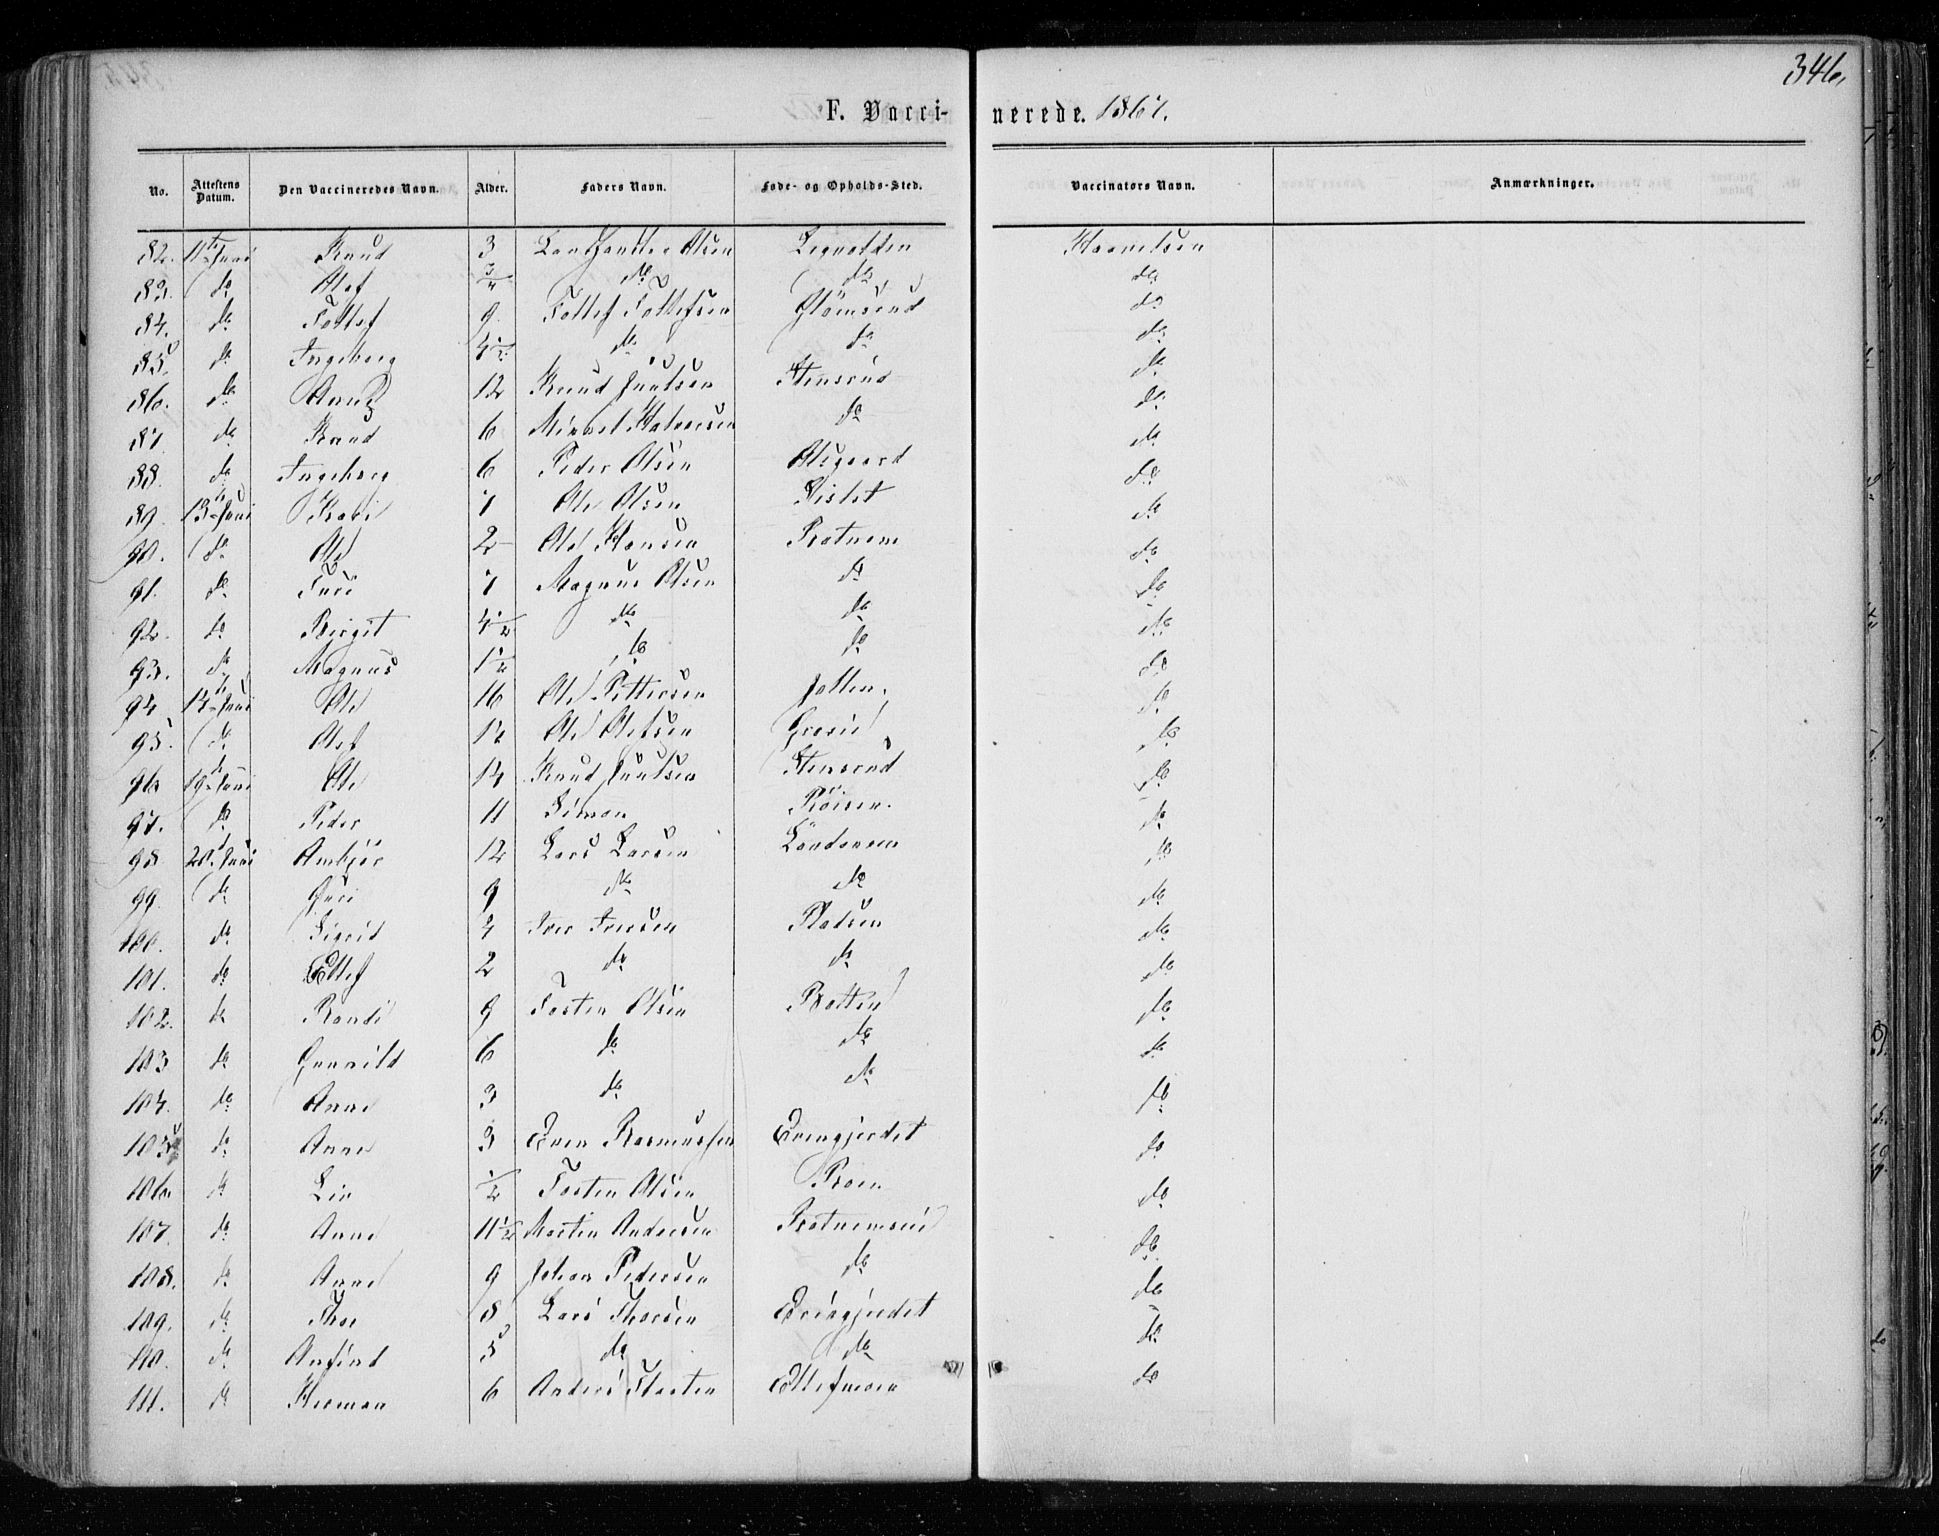 346.
F. Vaccinerede. 1867.
No. Attestens Datum. Den Vaccineredes Navn. Alder. Faders Navn. Føde- og Opholds-Sted. Vaccinators Navn. Anmærkninger.
82. 11te Juni Knud 3 Olsen
83. do Olef 3/4 do do do
84. do Tollef 9 Tollef Tollefsen do
85. do Ingeborg 4 1/2 do do do
86. do Anne 12 Knud Juulsen Stensrud do
87. do Knud 6 Halvorsen do do
88. do Ingeborg 6 Peder Olsen Alsgaard do
89. 13 Juni Kari 7 Ole Olsen do
90. do Ole 2 Ole Hansen Rotnem do
91. do Turi 7 Magnus Olsen do do
92. do Birgit 4 1/2 do do do
93. do Magnus 1 1/2 do do do
94 14 Juni Ole 16 Ole Pettersen do
95. do Olef 12 Ole Olefsen do
96 19 Juni Ole 14 Knud Juulsen Stensrud do
97. do Peder 11 Simon Röisen. do
98 20. Juni Ambjør 12 Lars Larsen do
99. do Guri 9 do do do
100. do Sigrid 4 Iver Iversen Pladsen do
101. do Ellef 2 do do do
102. do Randi 9 Tosten Olsen Bratten do
103 do Gunnild 6 do do do
104. do Anne 3 do do do
105 do Anne 3 Even Rasmussen Evengjerdet do
106. do Liv 1/2 Tosten Olsen Roen do
107. do Anne 11 1/2 Martin Andersen Rotnemseie do
108. do Anne 9 Johan Pedersen do do
109. do Thor 8 Lars Thorsen Evengjerdet do
110. do Anfind 5 do do do
111. do Herman 6 Anders Ellefmoen do